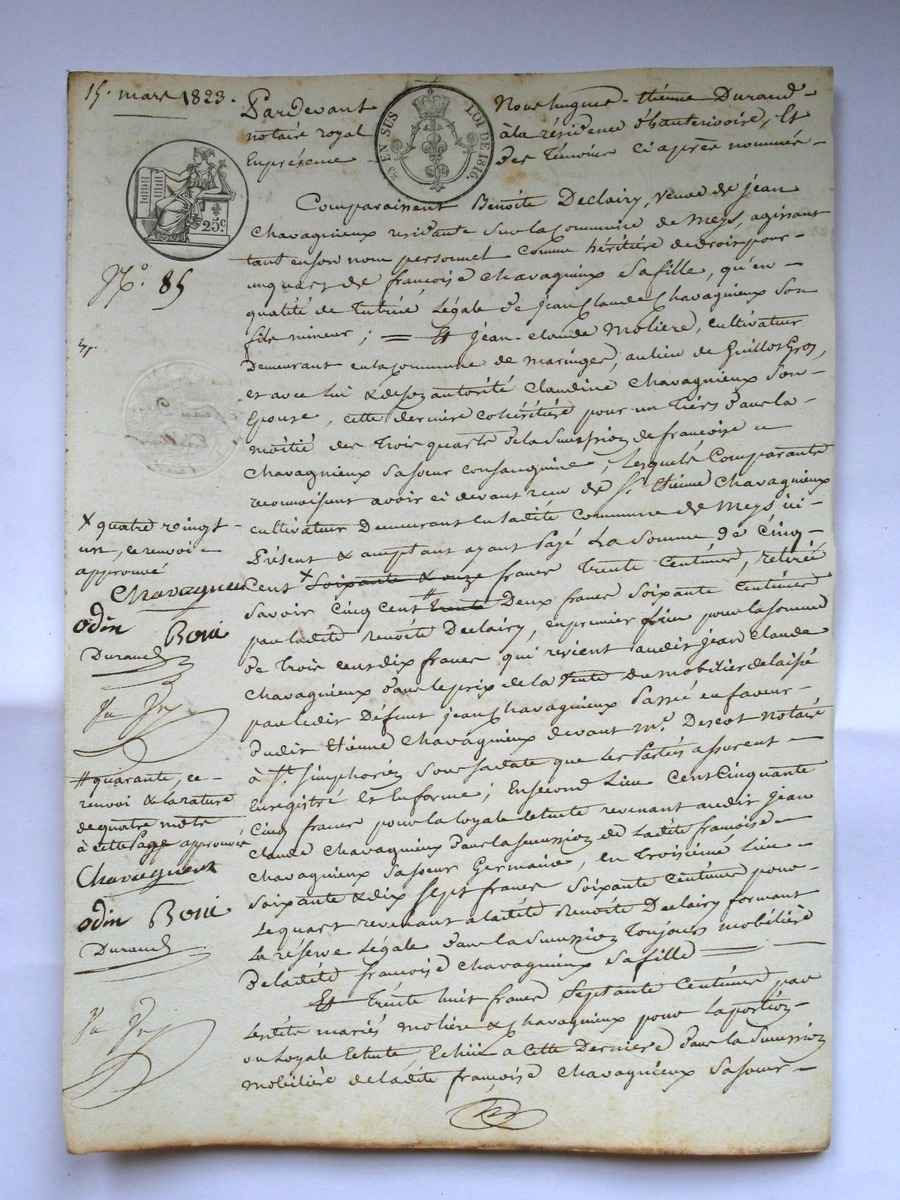 15. mars 1823.
Pardevant Nous hugues-étienne Durand
notaire royal à la résidence d'hauterivoire, Et
En présence des témoins ci après nommés
EN SUS
LOI DE 1816.
25c
N.° 85
Comparaissent Benoite Declairy, veuve de jean
Chavagnieux residante sur la commune de Meys, agissant
tant en son nom personnel comme héritière de droit pour
un quart de françoise Chavagnieux sa fille, qu'en
qualité de tutrice Légale de jean Claude Chavagnieux son
fils mineur; = Et jean-claude Moliere, cultivateur
Demeurant en la commune de maringes, au lieu de Guillot Gros,
et avec lui & de son autorité Claudine Chavagnieux son
Epouse, cette derniere cohéritière pour un tiers dans la
moitié des trois quarts de la succession de françoise
Chavagnieux sa soeur consanguine; Lesquels Comparants
reconnaissent avoir ci devant recu de S.r étienne Chavagnieux
cultivateur Demeurant en ladite Commune de Meys ici
Présent & acceptant ayant Payé La Somme de Cinq
Cent x soixante & onze francs trente Centimes, retirée
Savoir Cinq Cent # trente Deux francs soixante Centimes
par ladite Benoite Declairy, en premier Lieu pour la somme
de trois cent dix francs qui revient audit jean Claude
Chavagnieux dans le prix de la vente du mobilier delaissé
par ledit Défunt jean Chavagnieux Passée en faveur
dudit étienne Chavagnieux devant M.e Descot Notaire
à S.t simphorien sous sa date que les Parties assurent
Enregistré Et En forme; En second Lieu Cent Cinquante
Cinq francs pour la loyale Letute revenant audit jean
claude Chavagnieux dans la succession de Ladite françoise
Chavagnieux sa soeur Germaine, en troisième Lieu
soixante & dix sept francs soixante Centimes pour
Le quart revenant a ladite Benoite Declairy formant
La réserve Légale dans la succession toujours mobilière
De ladite françoise Chavagnieux sa fille
Et trente huit francs septante Centimes par
Lesdits mariés moliere & Chavagnieux pour la portion
ou Loyale Letute, Echue a cette Derniere dans la succession
mobilière de ladite françoise Chavagnieux sa soeur
x quatre vingt
un, ce renvoi
approuvé
Chavagneux
odin Boni
Durand
# quarante, ce
renvoi & la rature
de quatre mots
à cette Page approuvé
Chavagneux
odin Boni
Durand